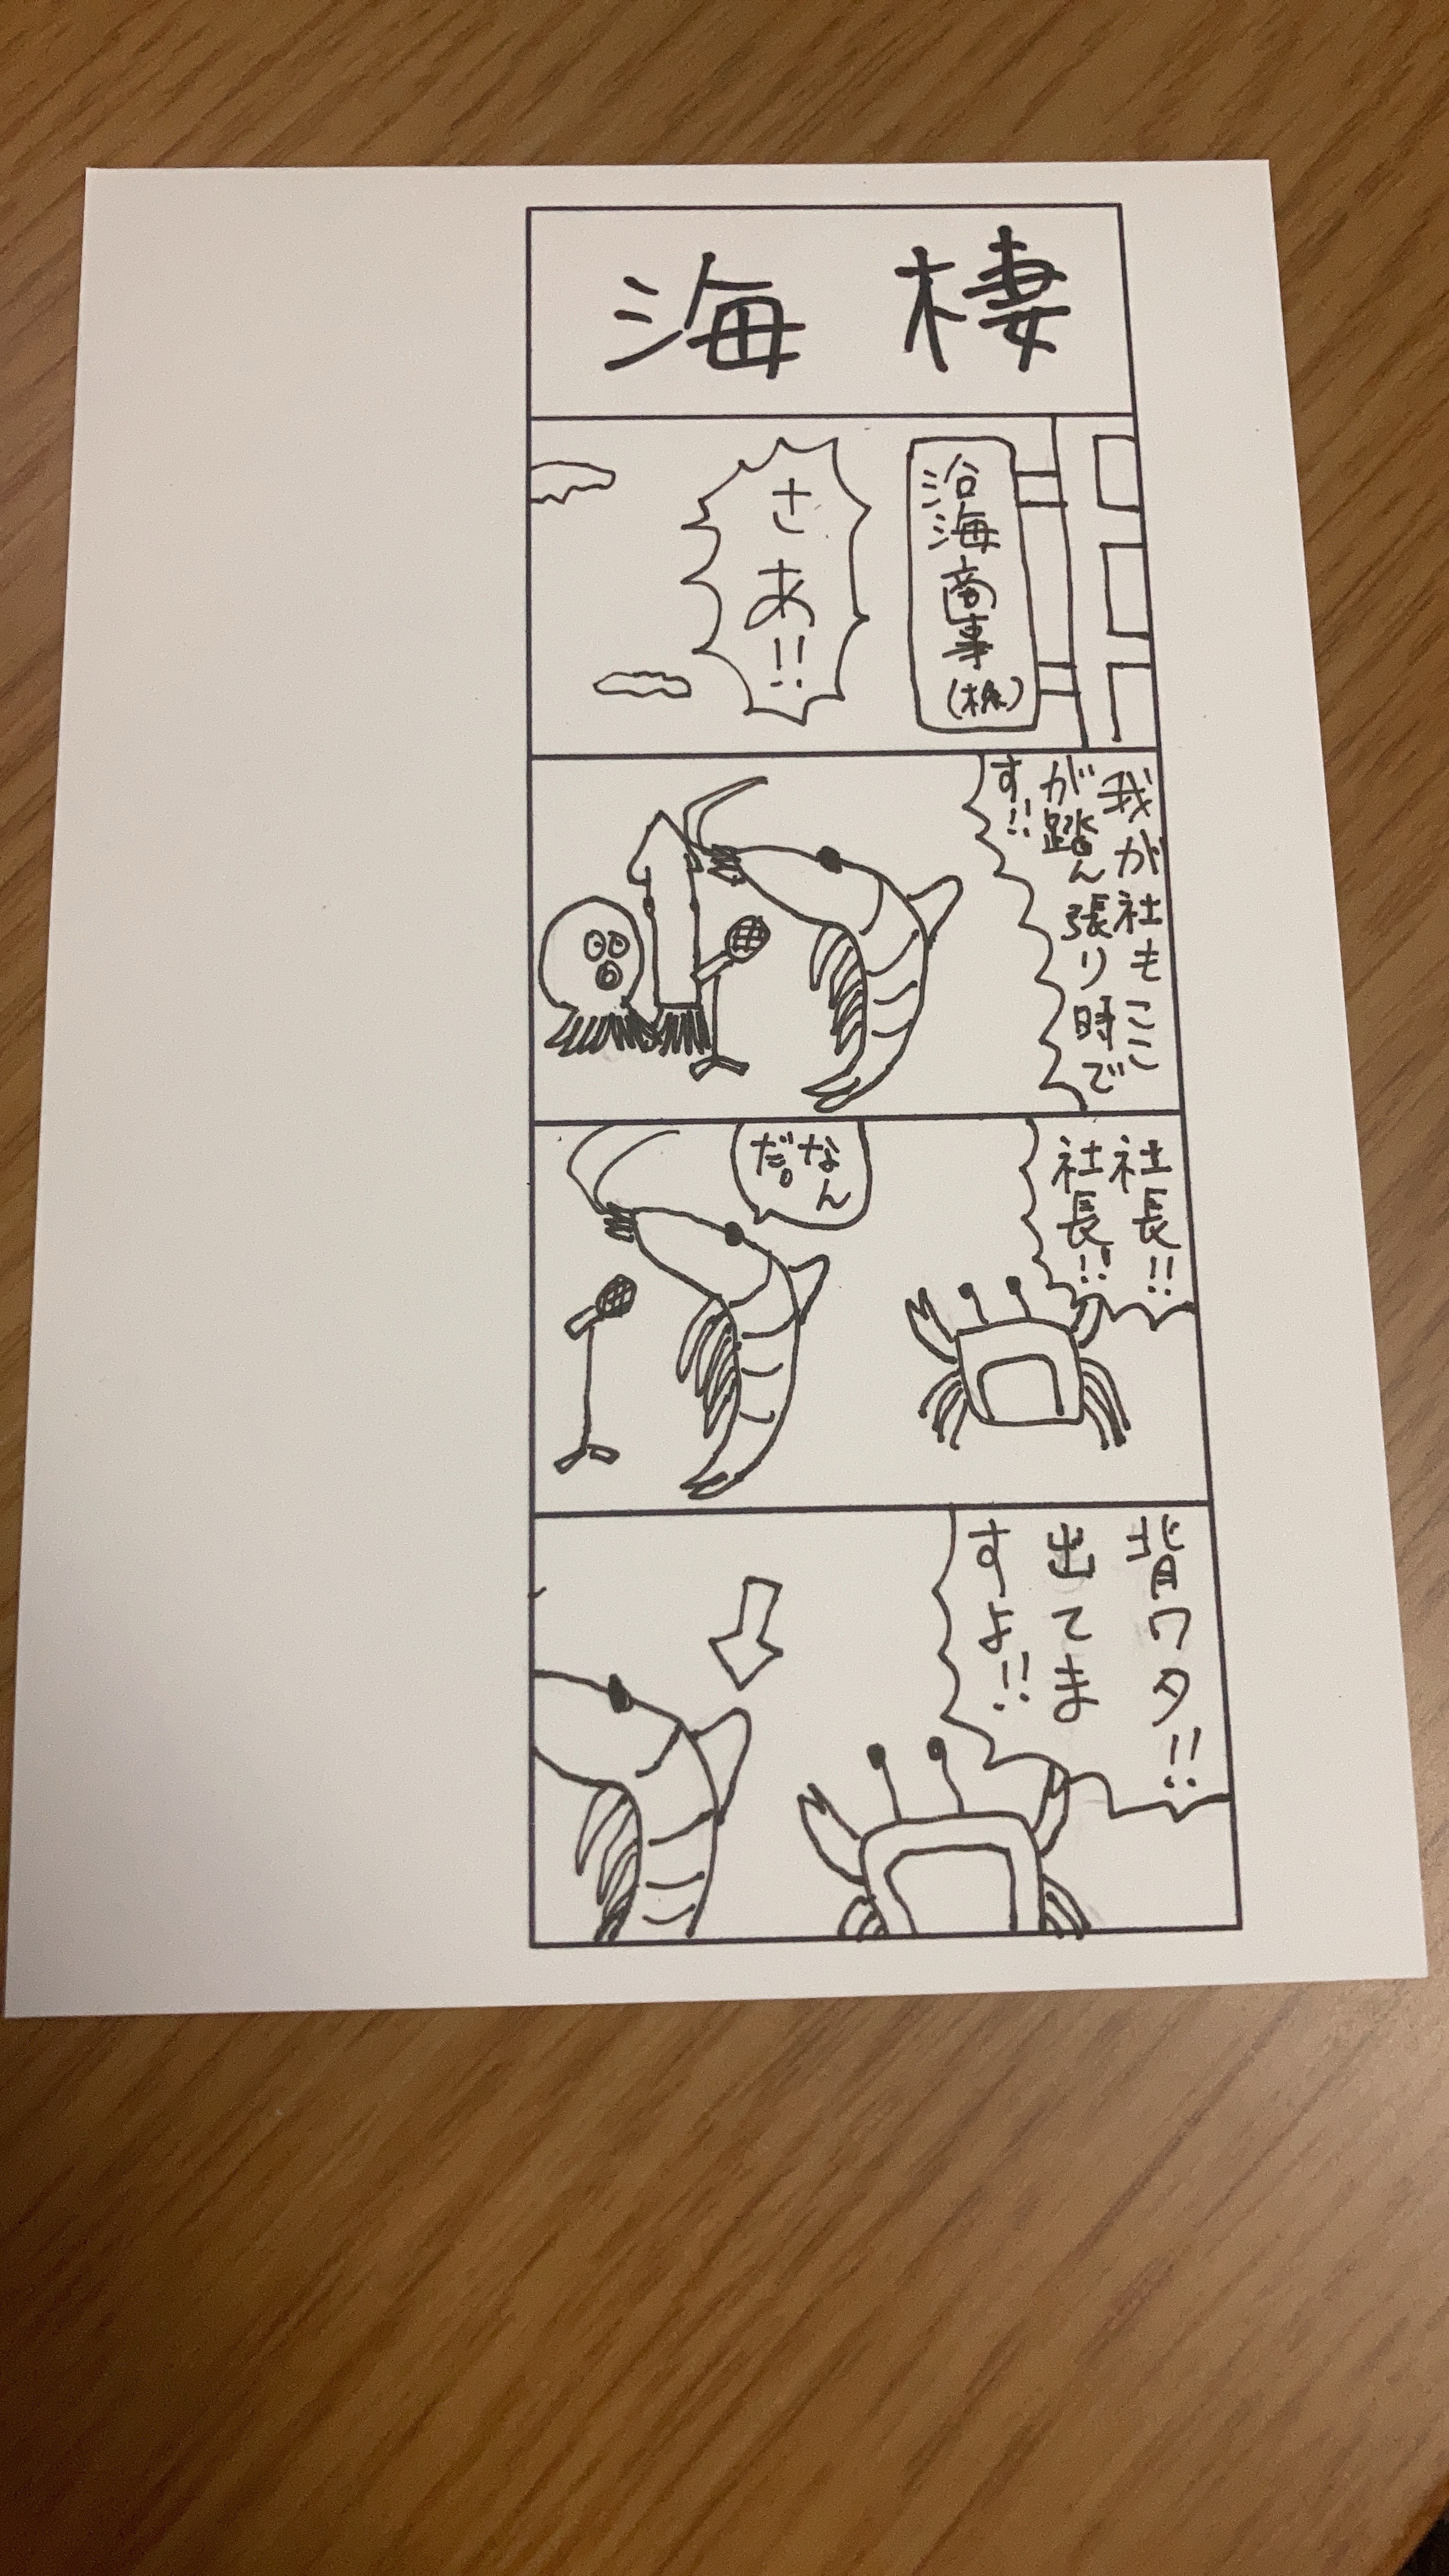 海棲
沿海商事(株)
さあ!!
我が社もここ
が踏ん張り時で
す!!
社長!!
社長!!
なん
だ。
背ワタ!!
出てま
すよ!!